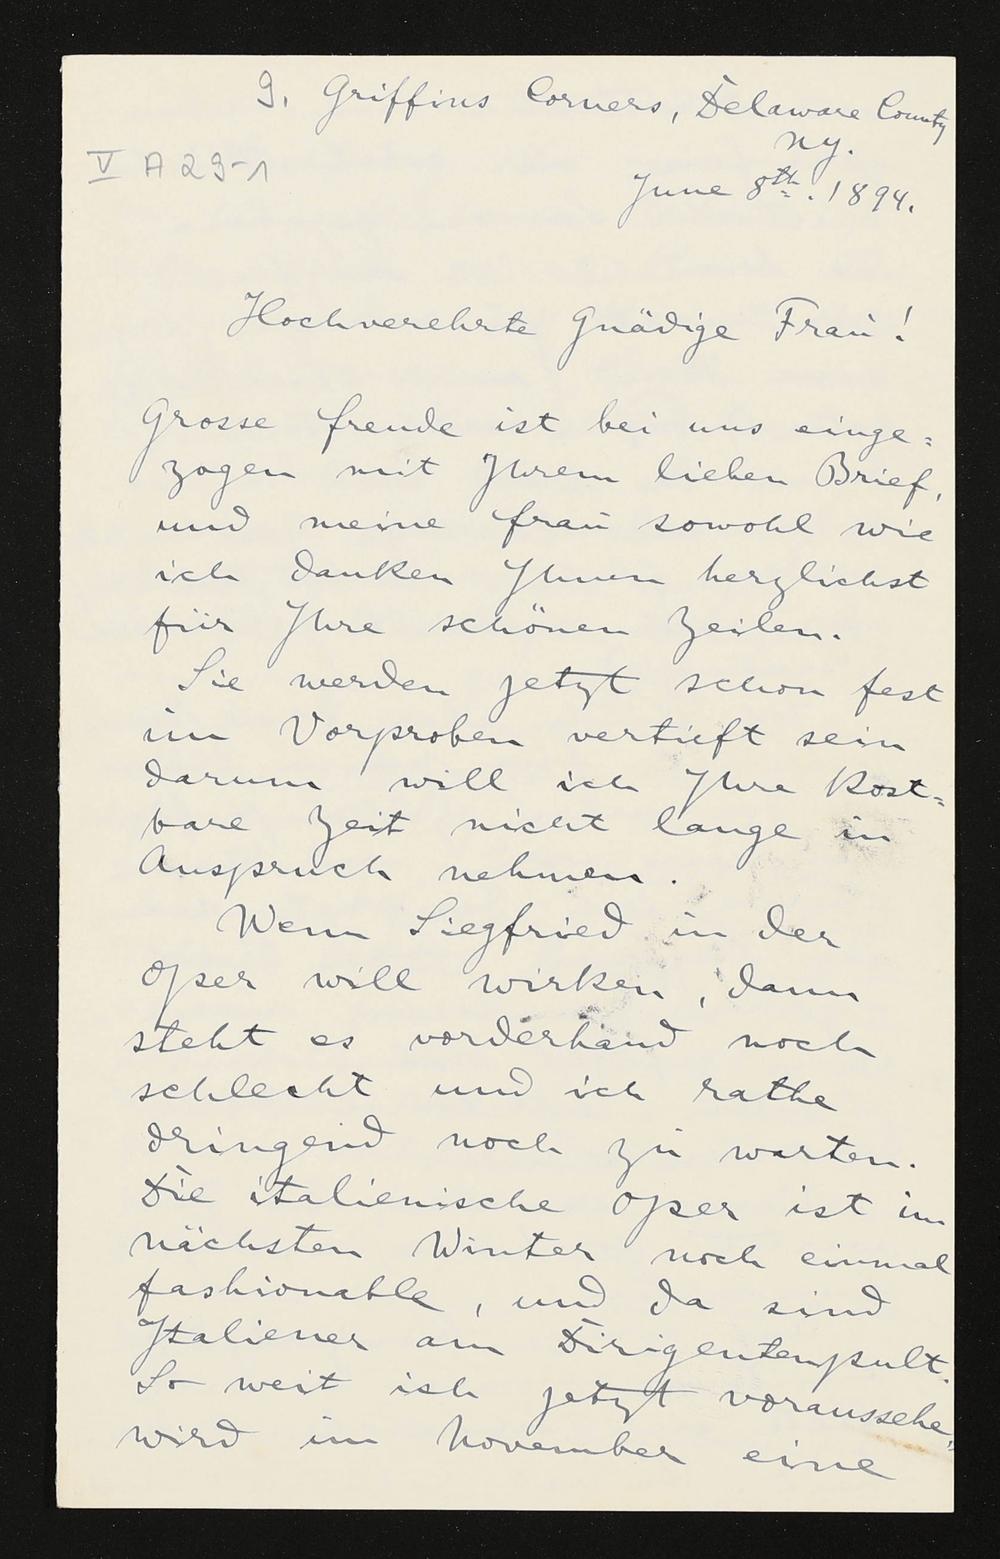 9. Griffins Corners, Delaware County
NY.
V A 29-1
June 8th. 1894.
Hochverehrte Gnädige Frau!
Grosse freude ist bei uns einge=
zogen mit Ihrem lieben Brief,
und meine frau sowohl wie
ich danken Ihnen herzlichst
für Ihre schönen Zeilen.
Sie werden jetzt schon fest
im Vorproben vertieft sein
darum will ich Ihre Kost=
bare Zeit nicht lange in
Anspruch nehmen.
Wenn Siegfried in der
Oper will wirken, dann
steht es vorderhand noch
schlecht und ich rathe
dringend noch zu warten.
Die italienische Oper ist im
nächsten Winter noch einmal
fashionable, und da sind
Italiener am Dirigentenpult.
So weit ich jetzt voraussehe,
wird im November eine